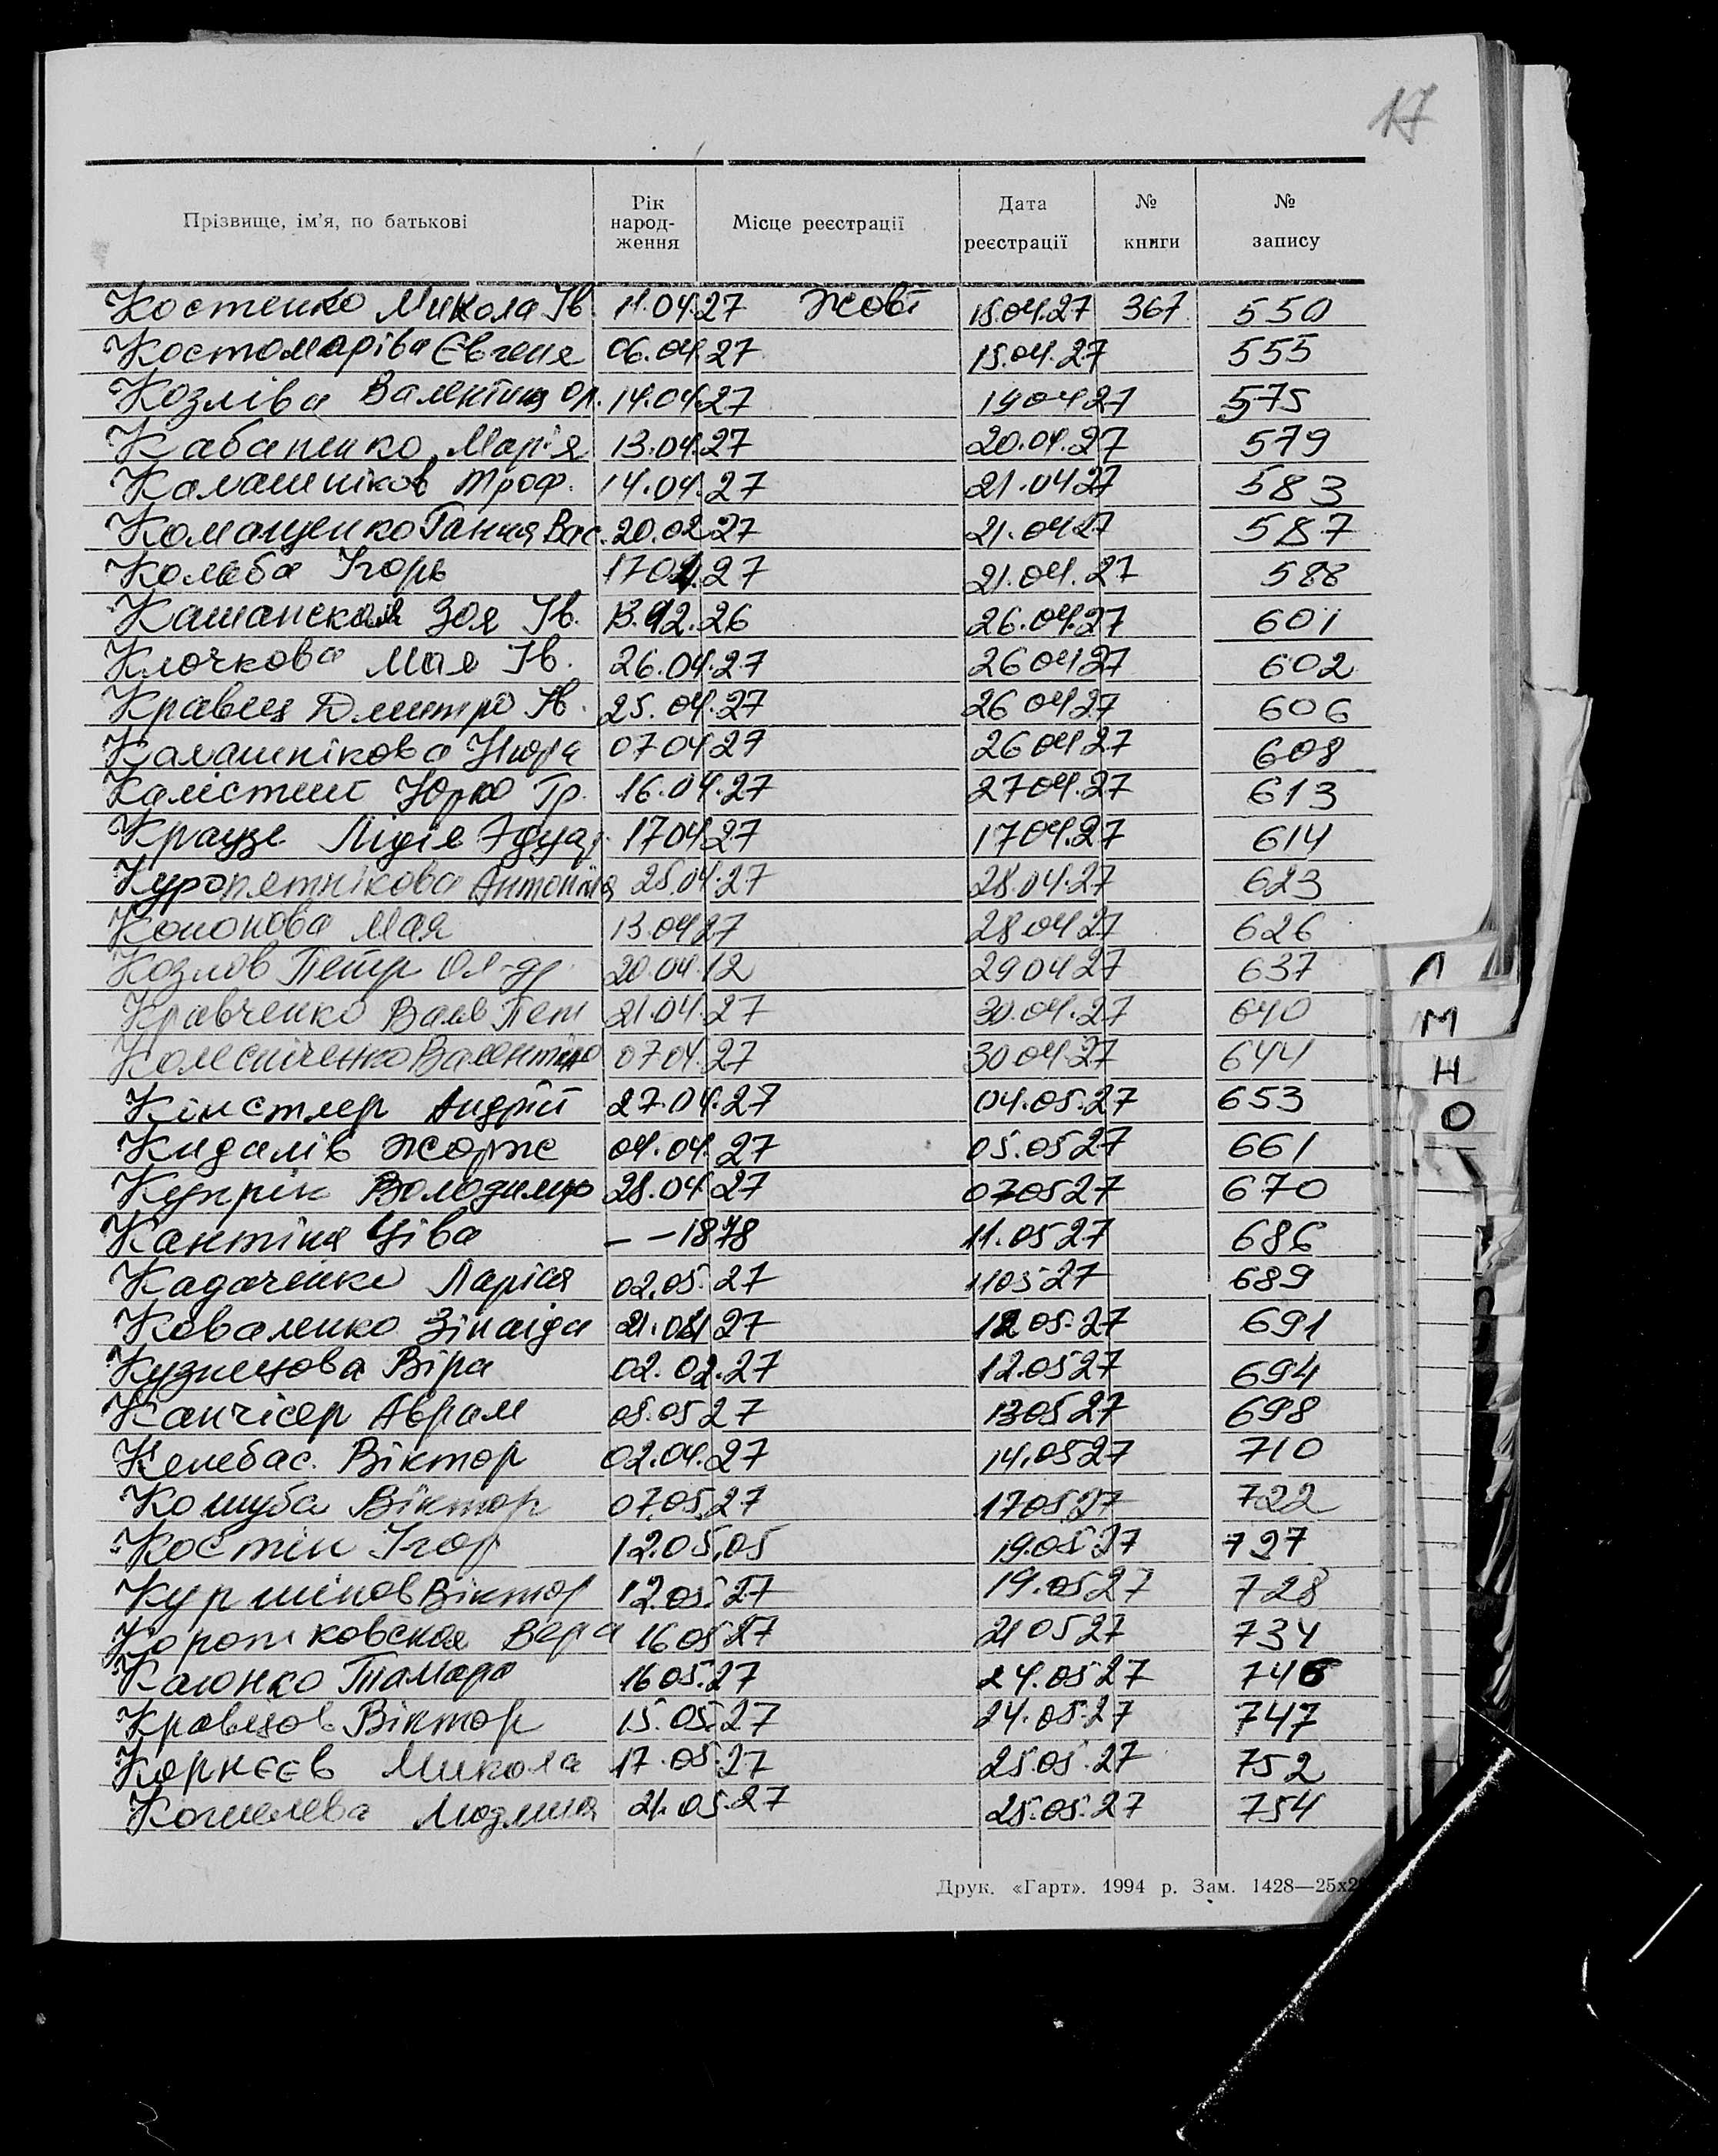 17
Прізвище, ім’я, по батькові Рік народ-ження Місце реєстрації Дата реєстрації № книги № запису
Костенко Микола Ів. 11.04.27 Жовт 15.04.27 367 550
Костомаріва Євгенія 06.04.27 15.04.27 555
Козліва Валентина Ол. 14.04.27 19 04 27 575
Кабаненко Марія 13.04.27 20.04.27 579
Калашніков Троф. 14.04.27 21.04 27 583
Комащенко Ганна Вас. 20.02.27 21.04 27 587
Колыба Ігорь 17 04.27 21.04.27 588
Кашанская Зоя Ів. 13.12.26 26.04.27 601
Клочкова Мая Ів. 26.04.27 26 04 27 602
Кравец Дмитро Ів. 25.04.27 26 04 27 606
Калашнікова Нюра 07 04 27 26 04 27 608
Калістий Юрко Гр. 16.04.27 27 04.27 613
Краузе Лідія Эдуар. 17 04 27 17 04.27 614
Куропятнікова Антоніна 25.04.27 28.04.27 623
Кононова Мая 13.04 27 28 04 27 626
Козлов Петр Ол-др 20.04.12 29 04 27 637
Кравченко Валь Пет 21.04.27 30.04.27 640
Колесніченко Валентин 07 04.27 30 04 27 644
Кінстлер Андрій 27.04.27 04.05.27 653
Кидалів Жорж 04.04.27 05.05 27 661
Купрік Володимир 28.04.27 07 05 27 670
Кантіня Ціва – – 1878 11.05 27 686
Кадаченко Ларіся 02.05.27 11 05 27 689
Коваленко Зінаіда 21.04 27 12 05.27 691
Кузнецова Віра 02.02.27 12.05 27 694
Канчісер Аврам 05.05 27 13 05 27 698
Келебас. Віктор 02.04.27 14.05 27 710
Кошуба Віктор 07.05.27 17 05 27 722
Костін Ігор 12.05.05 19.05 27 727
Куршінов Віктор 12.05.27 19.05.27 728
Коротковская Вера 16 05 27 21 05 27 734
Каюнко Тамара 16 05.27 24.05 27 746
Кравцов Віктор 15.05.27 24.05.27 747
Корнєєв Микола 17.05.27 25.05.27 752
Кошелева Людмила 21.05.27 25.05.27 754
Л
М
Н
О
Друк. «Гарт». 1994 р. Зам. 1428—25х2